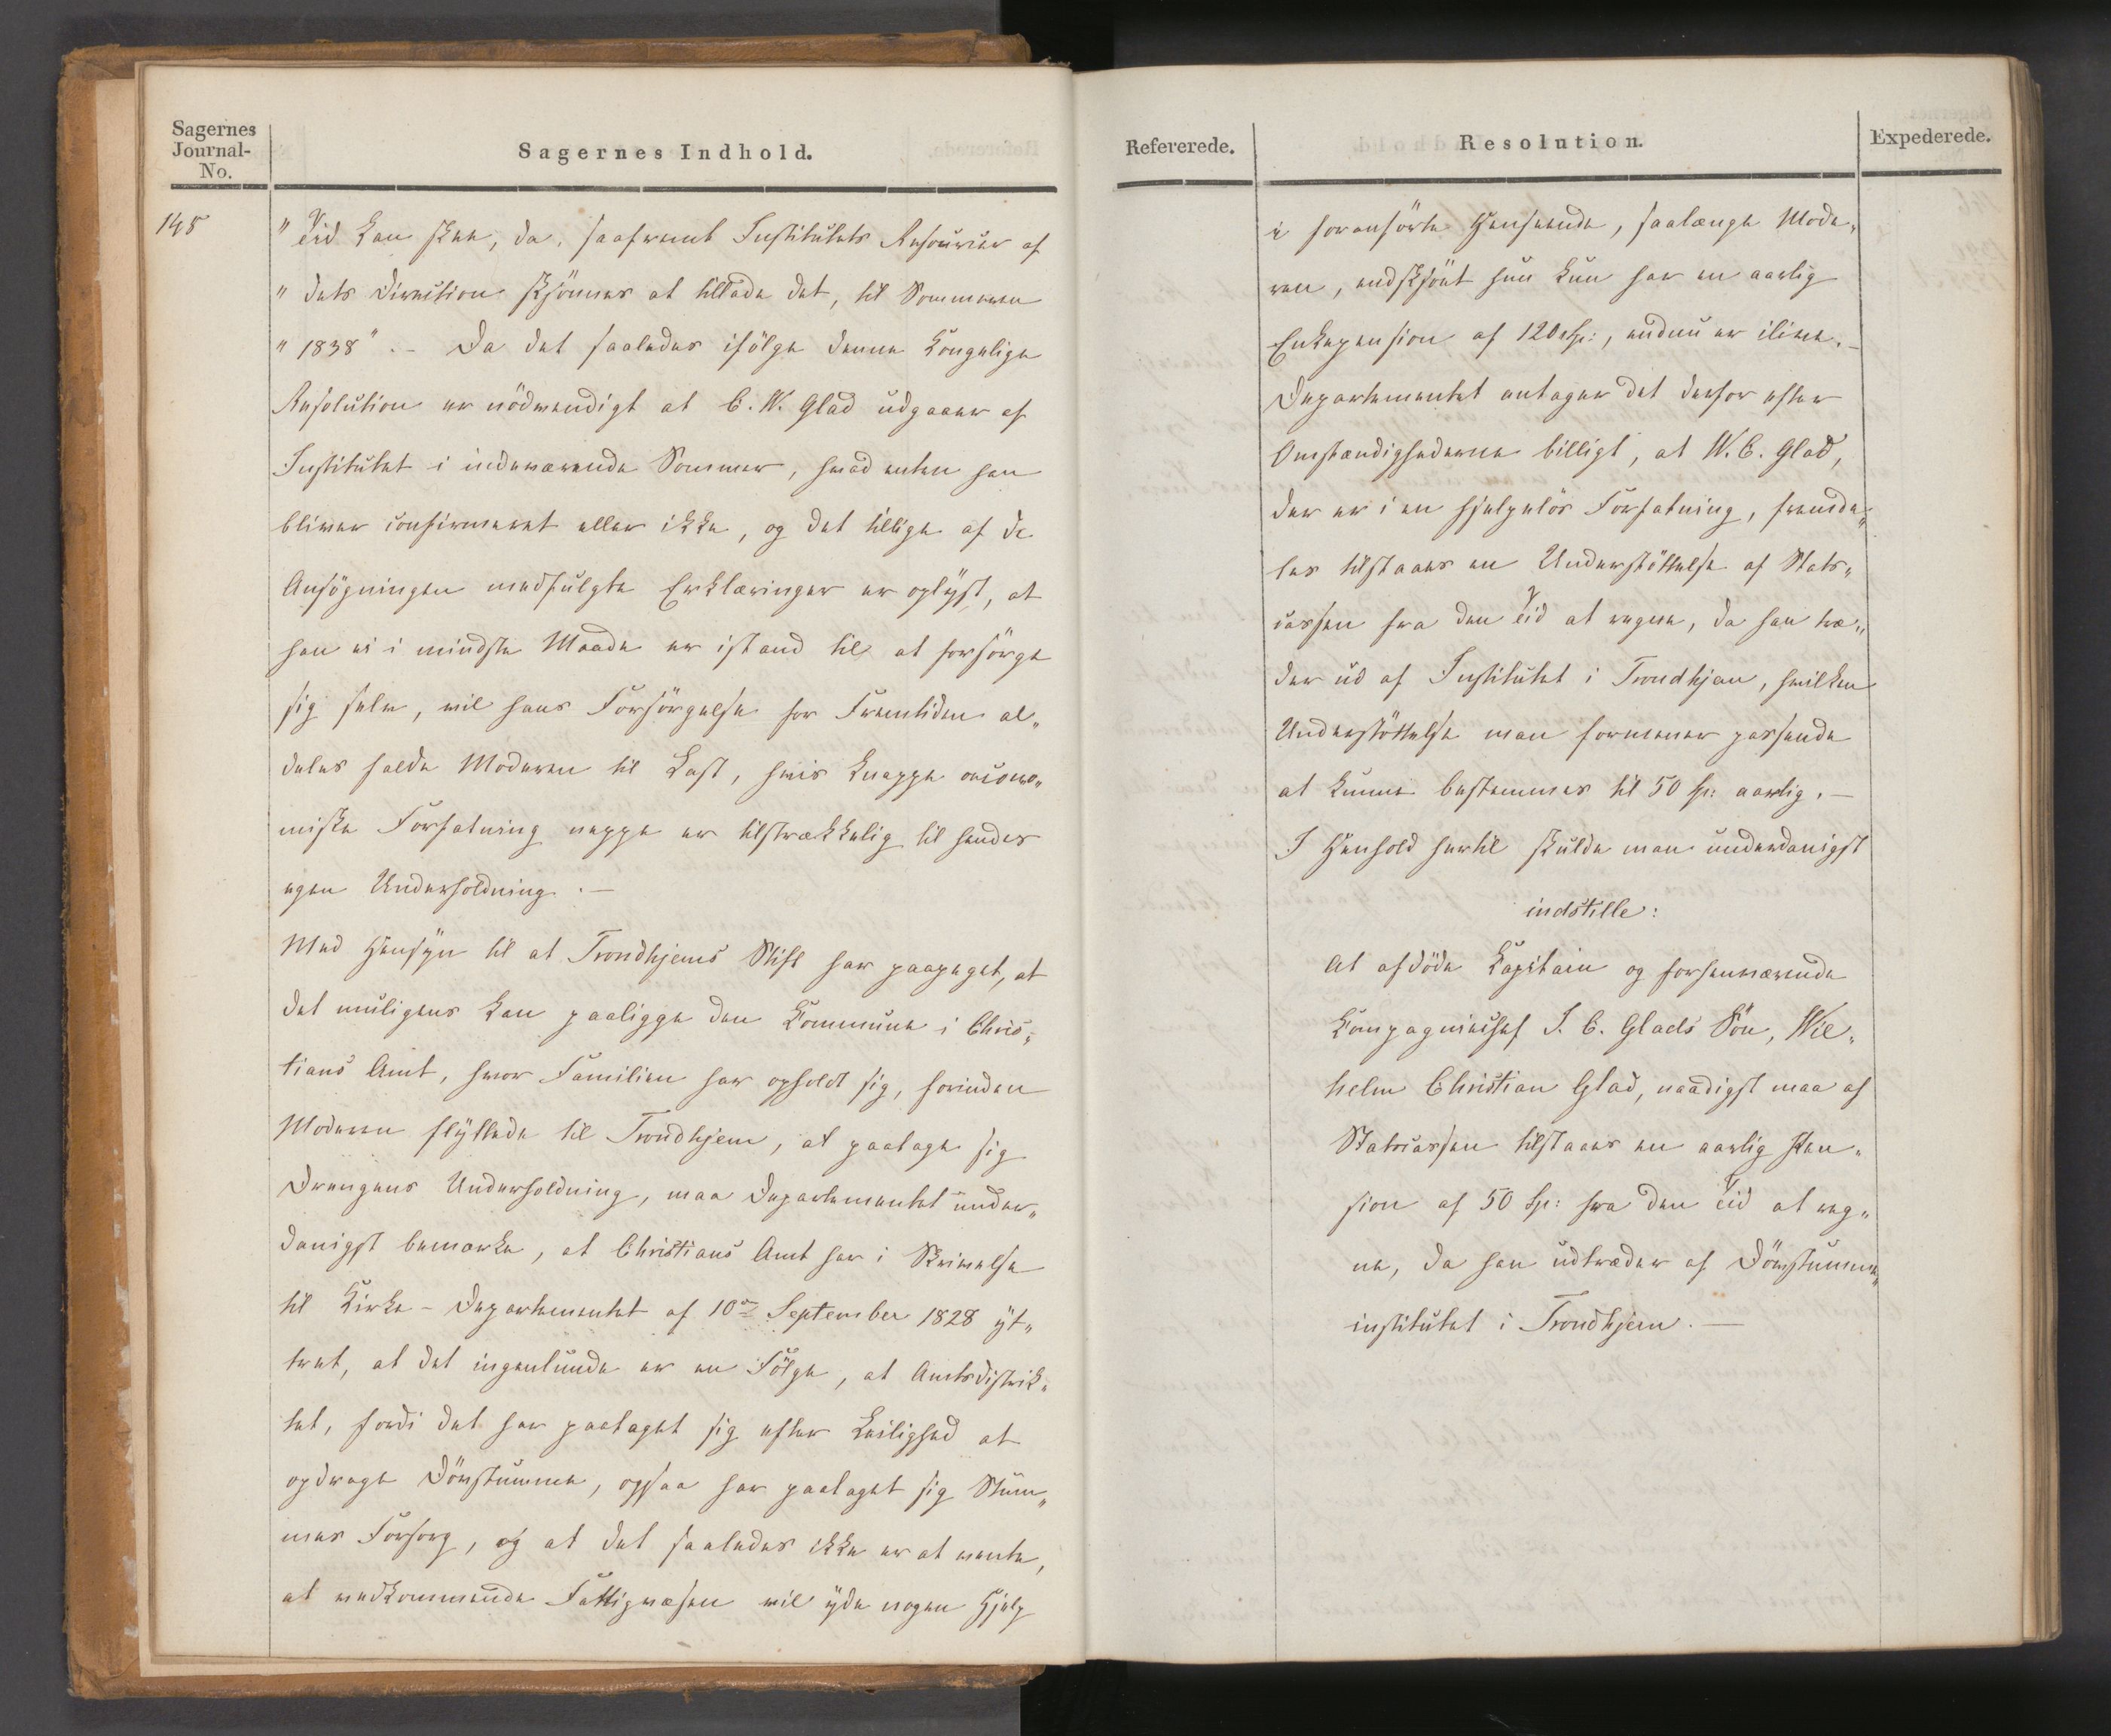 Sagernes
Journal-
No.
Sagernes Indhold.
145
" Tid kan skee, da, saafremt Institutets Resourcer af
" dets Direction skjönnes at tillade det, til Sommeren
" 1838" . – Da det saaledes ifölge denne Kongelige
Resolution er nödvendigt at C. W. Glad udgaaer af
Institutet i indeværende Sommer, hvad enten han
bliver confirmeret eller ikke, og det tillige af de
Ansögningen medfulgte Erklæringer er oplyst, at
han ei i mindste Maade er istand til at forsörge
sig selv, vil hans Forsörgelse for Fremtiden al„
deles falde Moderen til Last, hvis knappe oecono„
miske Forfatning neppe er tilstrækkelig til hendes
egen Underholdning. –
Med Hensyn til at Trondhjems Stift har paapeget, at
det muligens kan paaligge den Kommune i Chris„
tians Amt, hvor Familien har opholdt sig, forinden
Moderen flyttede til Trondhjem, at paatage sig
Drengens Underholdning, maa Departementet under„
danigst bemærke, at Christians Amt har i Skrivelse
til Kirke-Departementet af 10de September 1828 yt„
tret, at det ingenlunde er en Fölge, at Amtsdistrik„
tet, fordi det har paataget sig efter Leilighed at
opdrage Dövstumme, ogsaa har paataget sig Stum„
mes Forsorg, og at det saaledes ikke er at vente,
at vedkommende Fattigvæsen vil yde nogen Hjelp
Refererede.
Resolution.
Expederede.
i foranförte Henseende, saalænge Mode„
ren, endskjönt hun kun har en aarlig
Enkepension af 120 Sp:, endnu er ilive. –
Departementet antager det derfor efter
Omstændighederne billigt, at W. C. Glad,
der er i en hjelpelös Forfatning, fremde„
les tilstaaes en Understöttelse af Stats„
cassen fra den Tid at regne, da han træ„
der ud af Institutet i Trondhjem, hvilken
Understöttelse man formener passende
at kunne bestemmes til 50 Sp: aarlig. –
I Henhold hertil skulde man underdanigst
indstille:
At afdöde Kapitain og forhenværende
Kompagniechef I. C. Glads Sön, Wil„
helm Christian Glad, naadigst maa af
Statscassen tilstaaes en aarlig Pen„
sion af 50 Sp: fra den Tid at reg„
ne, da han udtræder af Dövstumme„
institutet i Trondhjem. –